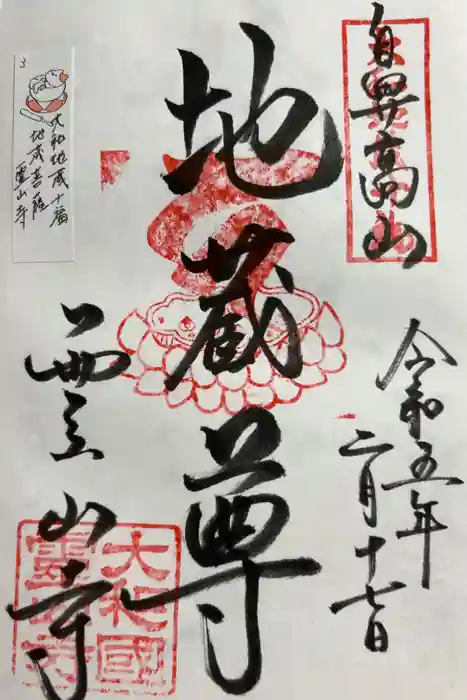 鼻高山
令和五年
二月十七日
地蔵尊
霊山寺
大和國
霊山寺
3
大和地蔵十福
地蔵菩薩
霊山寺